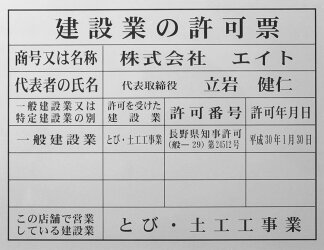 建設業の許可票
商号又は名称 株式会社 エイト
代表者の氏名 代表取締役 立岩 健仁
一般建設業又は特定建設業の別 許可を受けた建設業 許可番号 許可年月日
一般建設業 とび・土工工事業 長野県知事許可(般―29)第24512号 平成30年1月30日
この店舗で営業している建設業 とび・土工工事業